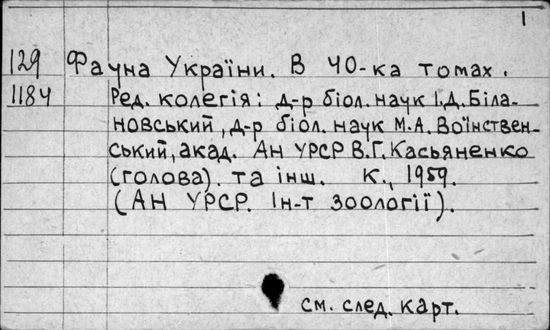 1
129 Фауна України. В 40-ка томах.
1184 Ред. колегія: д-р біол. наук І.Д. Біла-
новський, д-р біол. наук М.А. Воїнствен-
ський, акад. АН УРСР В.Г. Касьяненко
(голова). та інш. К., 1959.
(АН УРСР. Ін-т зоології).
см. след. карт.